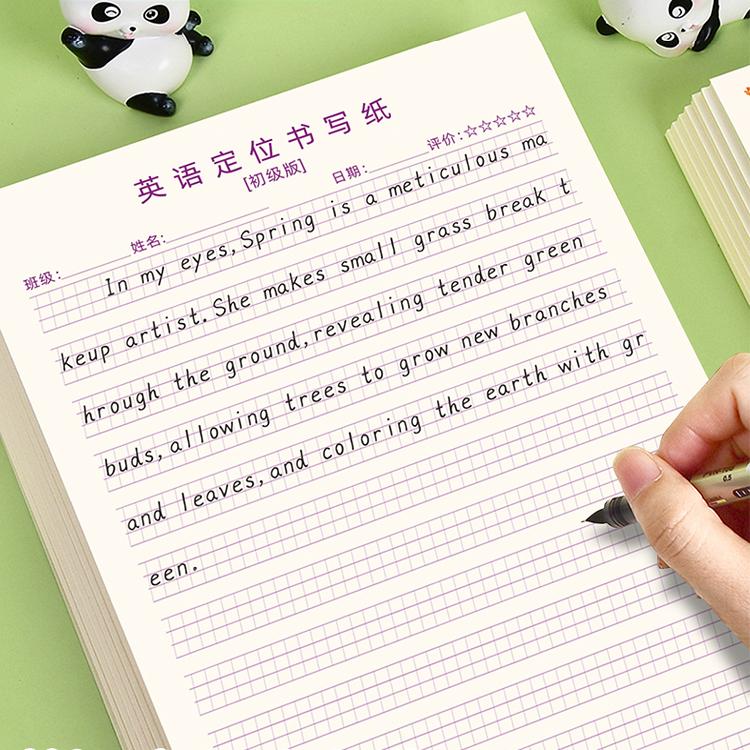 英语定位书写纸
[初级版]
班级: 姓名: 日期: 评价:☆☆☆☆☆
In my eyes,Spring is a meticulous ma
keup artist.She makes small grass break t
hrough the ground,revealing tender green
buds,allowing trees to grow new branches
and leaves,and coloring the earth with gr
een.
0.5